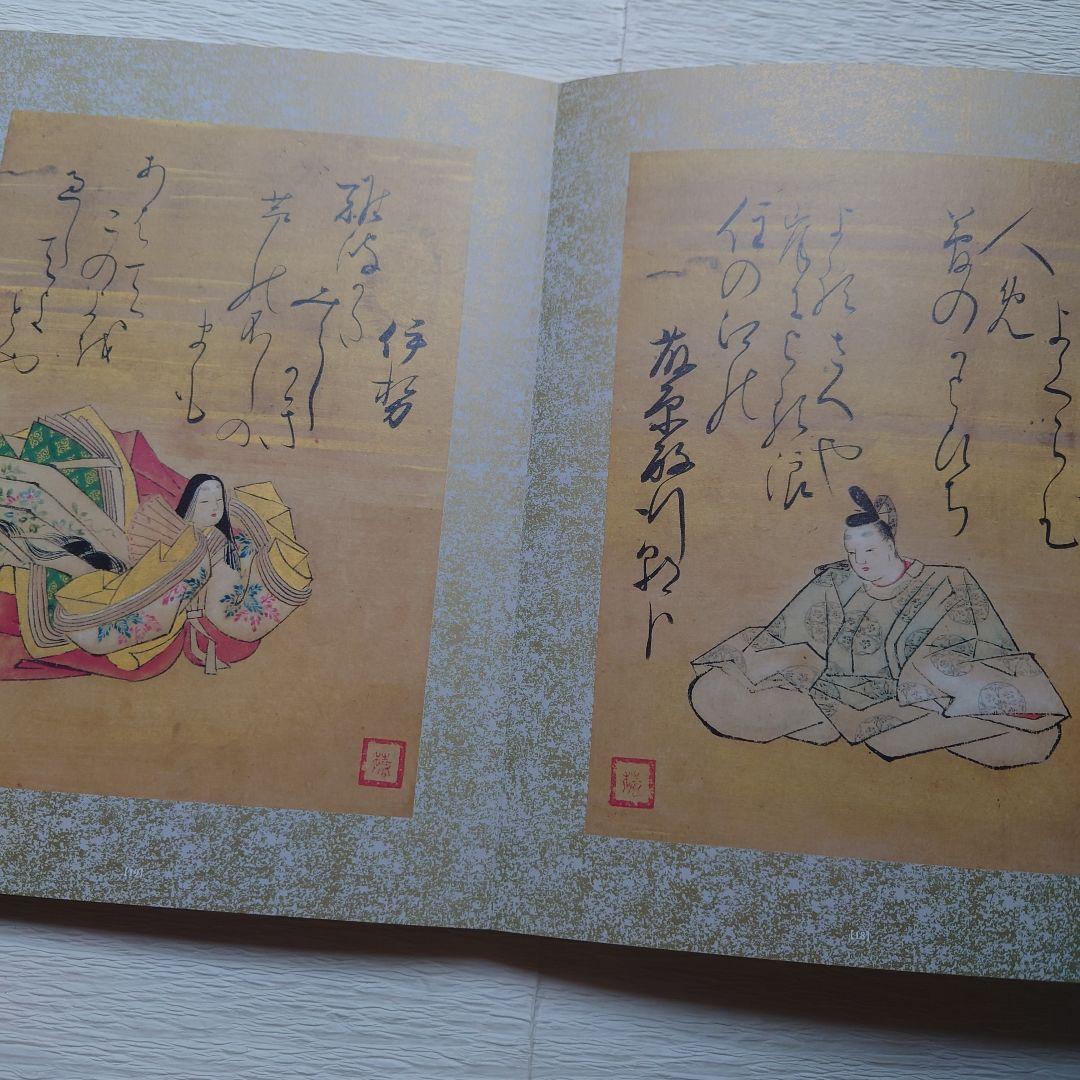 藤原敏行朝臣
住の江の
岸による浪
よるさへや
夢のかよひち
人め
よくらむ
[18]
伊勢
難波かた
みしかき
芦のふしの
まも
あはて
この世を
過し
てよ
とや
[19]